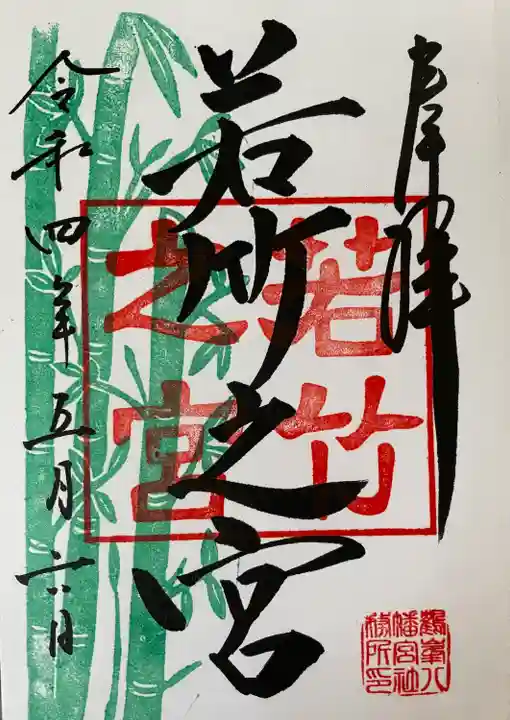 奉拝
若竹之宮
若竹
之宮
令和四年五月 日
鶴峯八
幡宮社
務所印